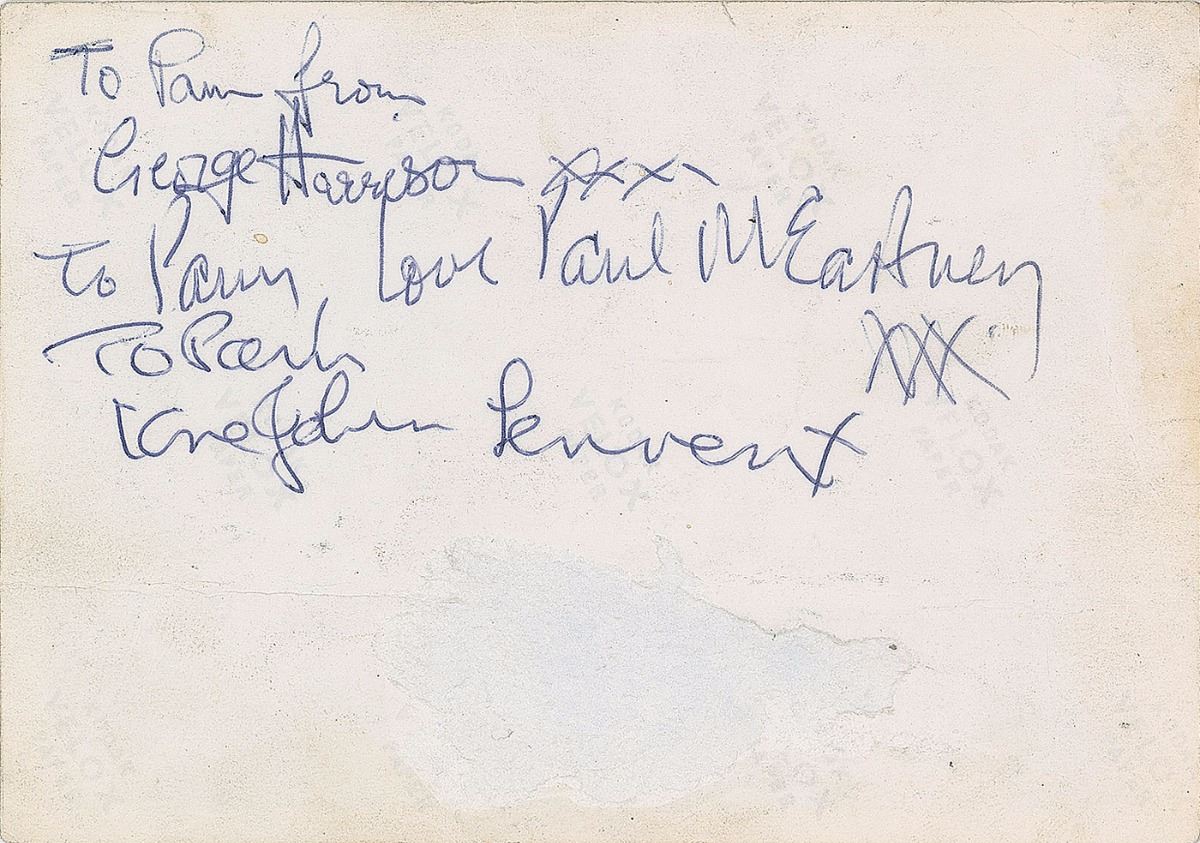 To Pam from
George Harrison xxx
To Pam, love Paul McCartney
XXX
To Pam
love John Lennon X
KODAK
VELOX
PAPER